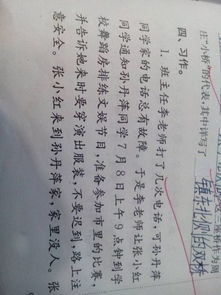 庄·小桥"的代表,其中详写了
镇东北侧的双桥
四、习作。
1. 班主任李老师打了几次电话,可孙丹萍
同学家的电话总有故障。于是李老师让张小红
同学通知孙丹萍同学7月8日上午9点钟到学
校舞蹈房排练文娱节目,准备参加市里的比赛,
并告诉她来时要穿演出服装,不要迟到,路上注
意安全。张小红来到孙丹萍家,家里没人。张